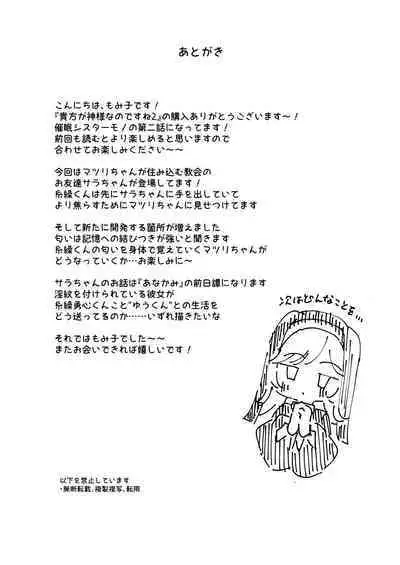 あとがき
こんにちは、もみ子です！
『貴方が神様なのですね2』の購入ありがとうございます～！
催眠シスターモノの第二話になってます！
前回も読むとより楽しめると思いますので
合わせてお楽しみください～～
今回はマツリちゃんが住み込む教会の
お友達サラちゃんが登場してます！
糸綾くんは先にサラちゃんに手を出していて
より焦らすためにマツリちゃんに見せつけてます
そして新たに開発する箇所が増えました
匂いは記憶への結びつきが強いと聞きます
糸綾くんの匂いを身体で覚えていくマツリちゃんが
どうなっていくか…お楽しみに～
サラちゃんのお話は『あなかみ』の前日譚になります
淫紋を付けられている彼女が
糸綾勇心くんこと"ゆうくん"との生活を
どう送ってるのか……いずれ描きたいな
それではもみ子でした～～
またお会いできれば嬉しいです！
次はどんなことを…
以下を禁止しています
・無断転載、複製複写、転用